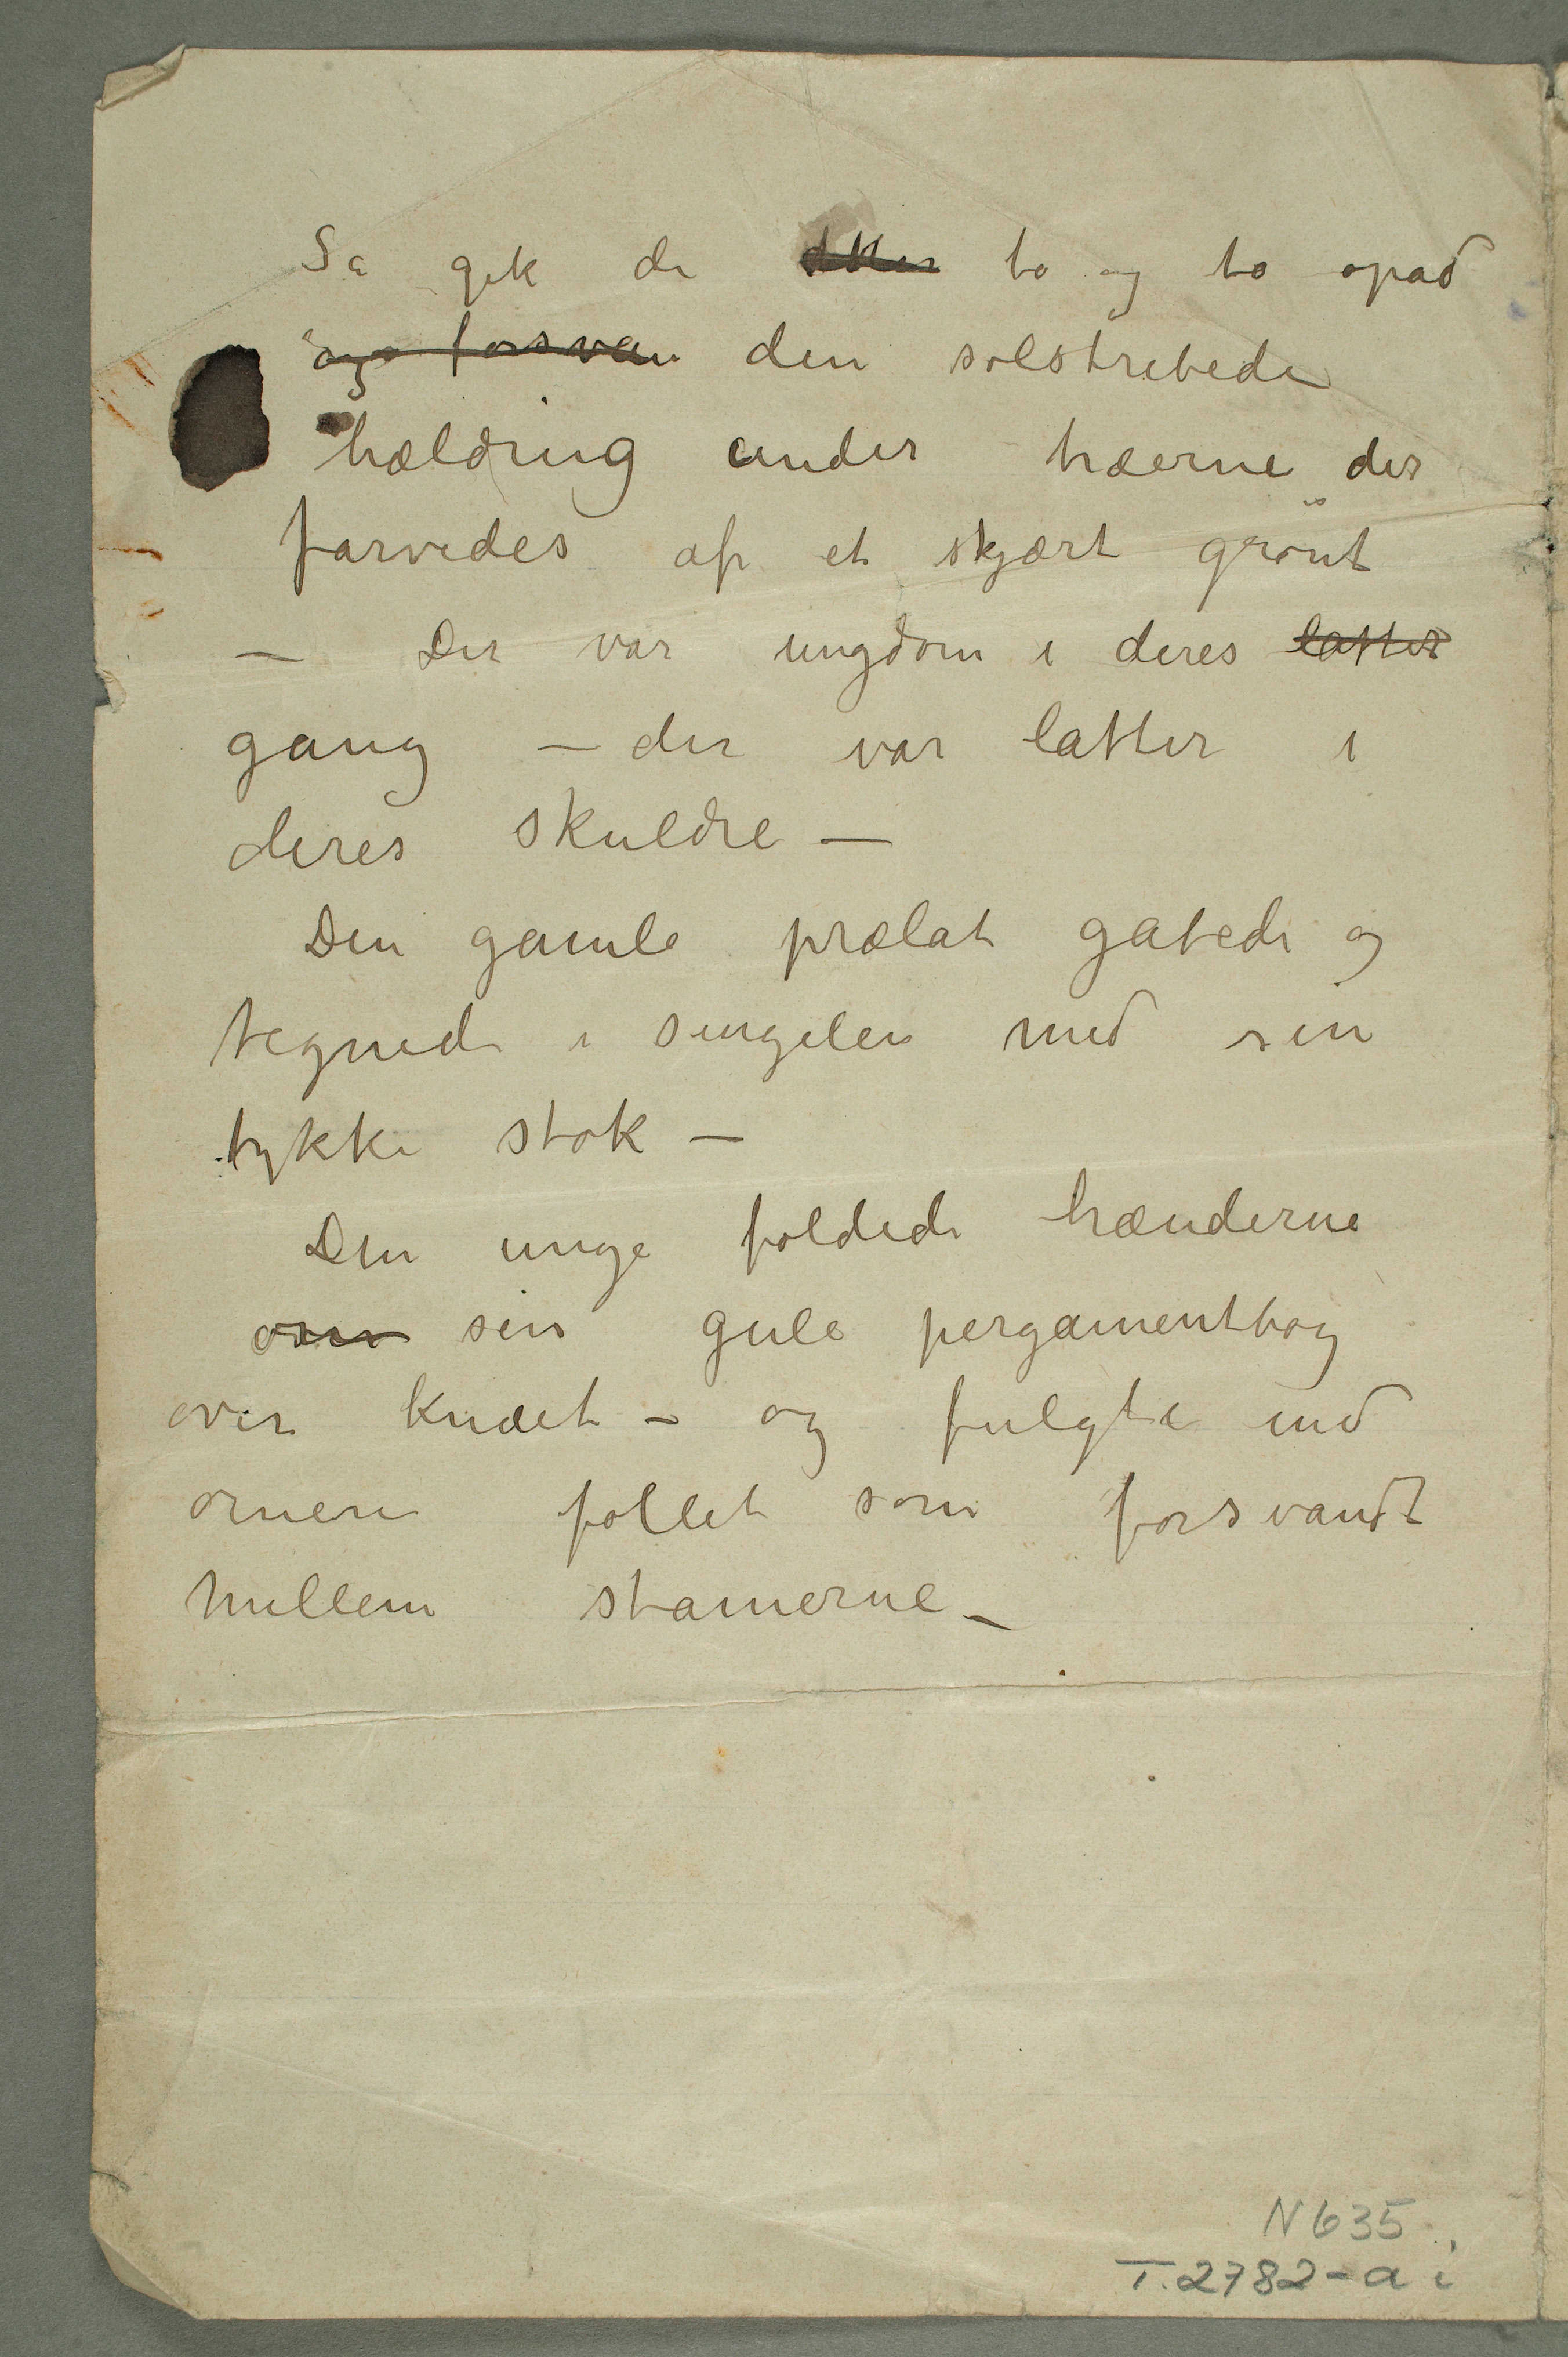 Sa gik de to og to opad
og forsvan den solstribede
hældning under træerne der
farvedes af et skjært grönt
— Der var ungdom i deres latter
gang — der var latter i
deres skuldre —
Den gamle prælat gabede og
tegnede i singelen med sin
tykke stok —
Den unge foldede hænderne
om sin gule pergamentbog
over knæet – og fulgte med
følget som forsvandt
mellem stamerne –
N 635
T. 2782-a i